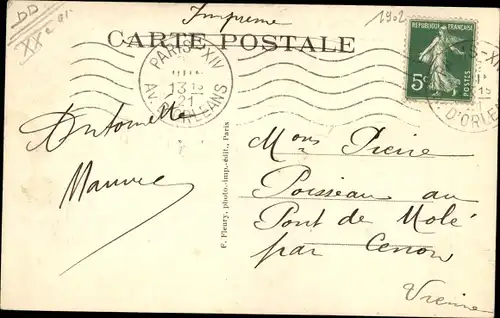 DD
XXe ar
Imprimé
1902
CARTE POSTALE
RÉPUBLIQUE FRANÇAISE
5c
POSTES
PARIS-XIV
13 15
21
AV. D'ORLEANS
S-XIV
D'ORLE
Antoinette
Mauvre
F. Fleury, photo-imp.-édit., Paris
Mons Pierre
Poisseau au
Pont de Molé
par Cenon
Vienne